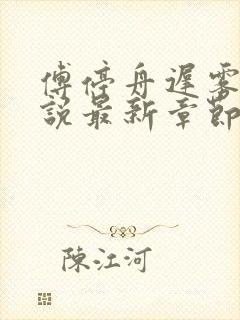 傅停舟遲雾
說最新章節
陳江河